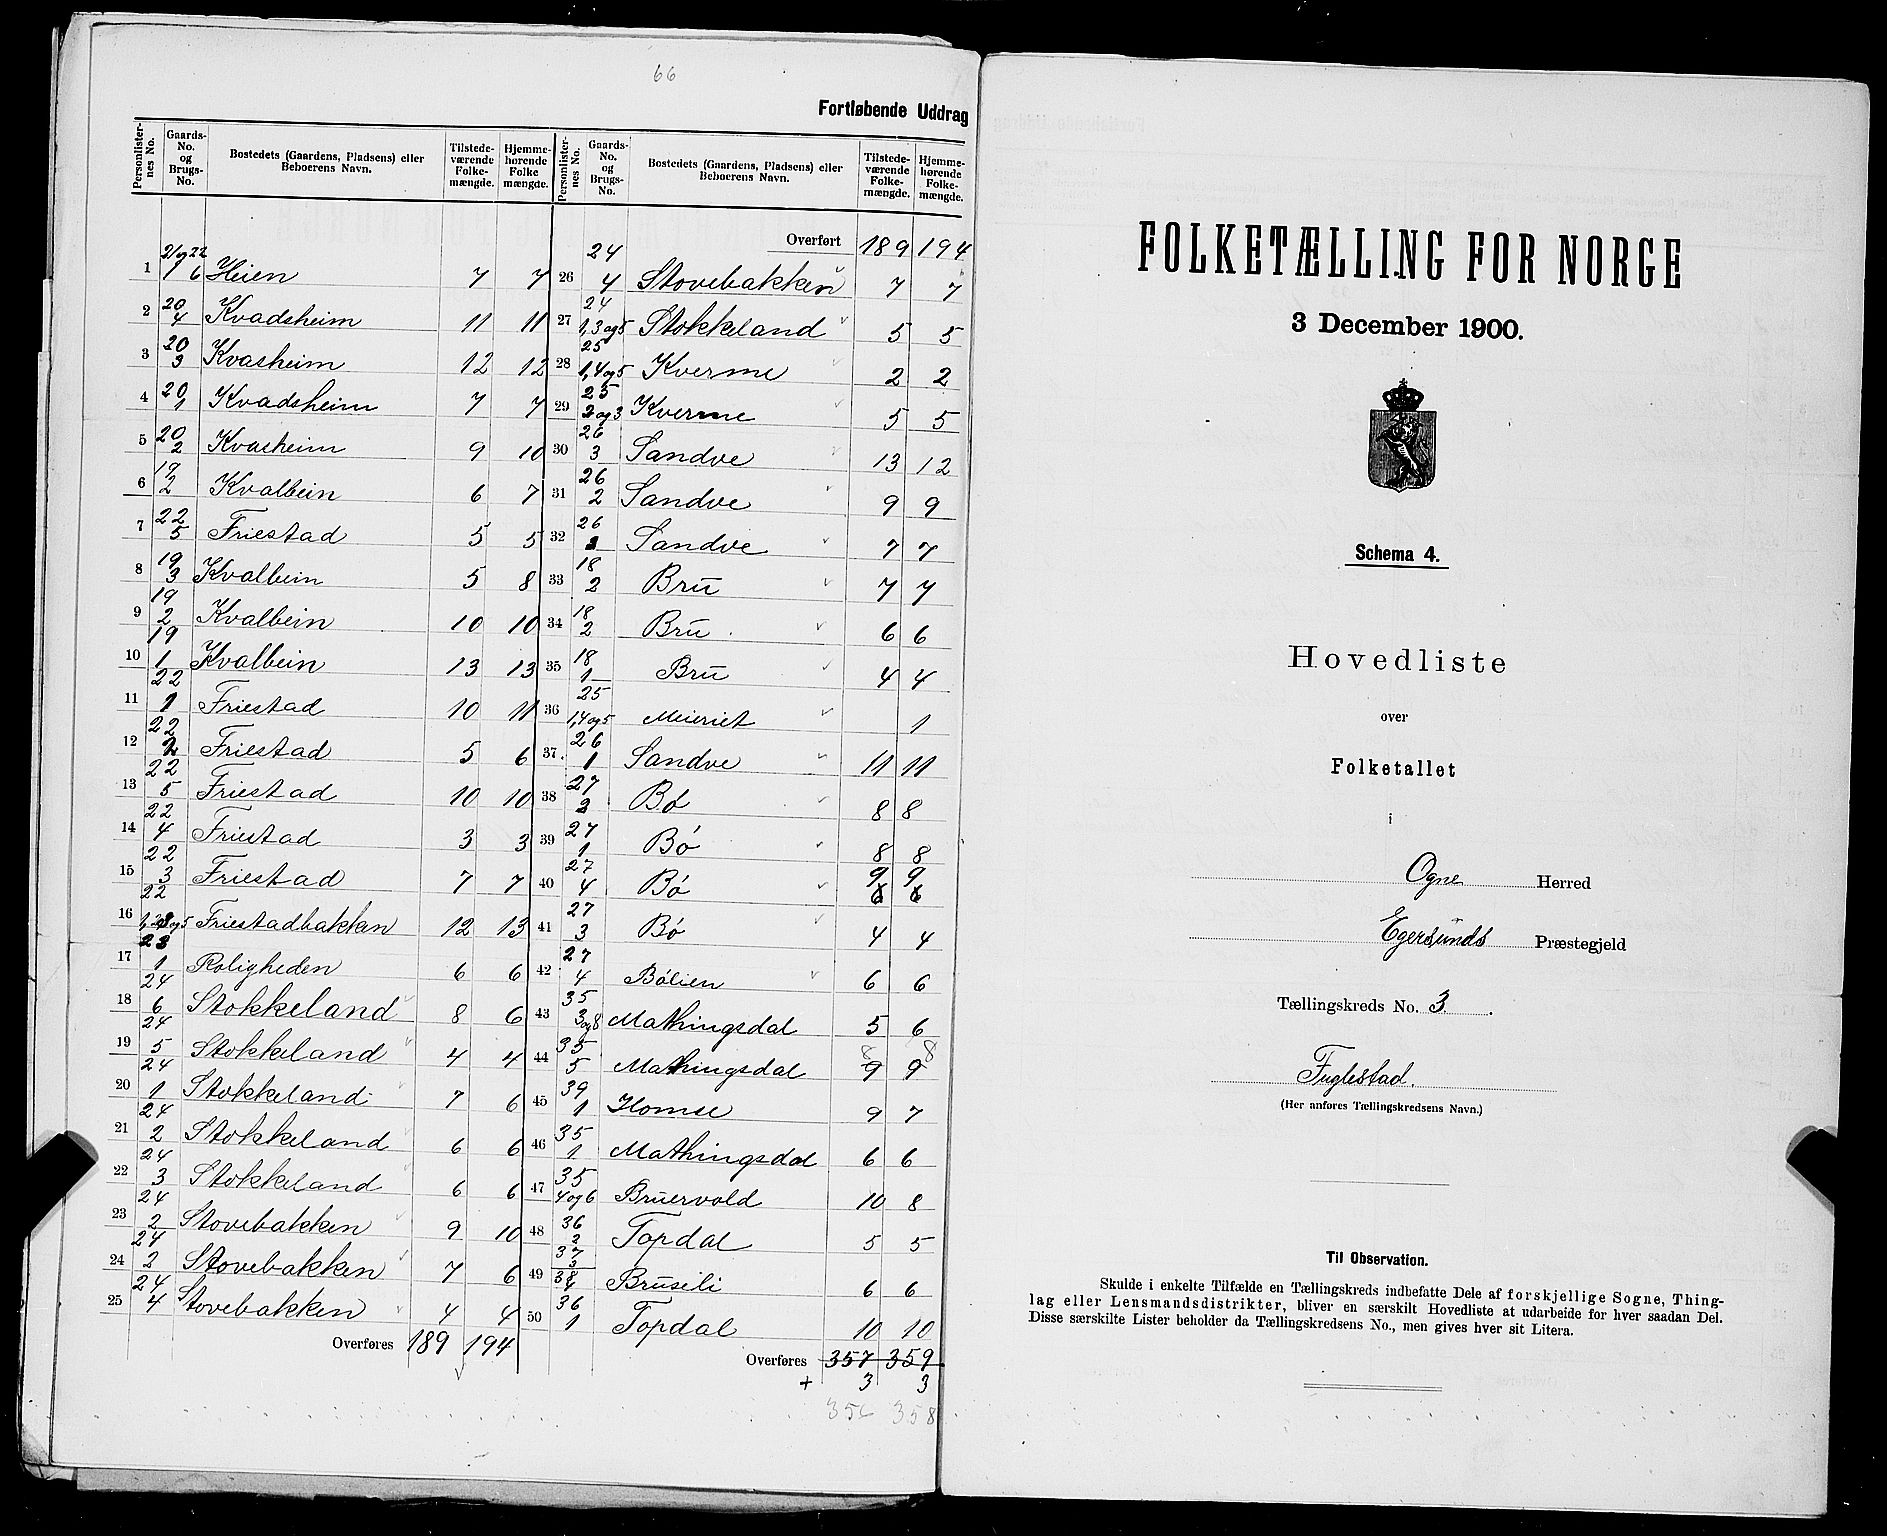 66
Fortløbende Uddrag
Personlister-nes No. | Gaards-No. og Brugs-No. | Bostedets (Gaardens, Pladsens) eller Beboerens Navn. | Tilstede-værende Folke-mængde. | Hjemme-hørende Folke mængde.
1 | 21 og 22 / 1 6 | Heien | 7 | 7
2 | 20 / 4 | Kvadsheim | 11 | 11
3 | 20 / 3 | Kvasheim | 12 | 12
4 | 20 / 1 | Kvadsheim | 7 | 7
5 | 20 / 2 | Kvasheim | 9 | 10
6 | 19 / 2 | Kvalbein | 6 | 7
7 | 22 / 5 | Friestad | 5 | 5
8 | 19 / 3 | Kvalbein | 5 | 8
9 | 19 / 2 | Kvalbein | 10 | 10
10 | 19 / 1 | Kvalbein | 13 | 13
11 | 22 / 1 | Friestad | 10 | 11
12 | 22 / 2 | Friestad | 5 | 6
13 | 22 / 5 | Friestad | 10 | 10
14 | 22 / 4 | Friestad | 3 | 3
15 | 22 / 3 | Friestad | 7 | 7
16 | 22 | Friestadbakken | 12 | 13
17 | 23 / 1 | Roligheden | 6 | 6
18 | 24 / 6 | Stokkeland | 8 | 6
19 | 24 / 5 | Stokkeland | 4 | 4
20 | 24 / 1 | Stokkeland | 7 | 6
21 | 24 / 2 | Stokkeland | 6 | 6
22 | 24 / 3 | Stokkeland | 6 | 6
23 | 24 / 2 | Stovebakken | 9 | 10
24 | 24 / 2 | Stovebakken | 7 | 6
25 | 24 / 4 | Stovebakken | 4 | 4
Overføres 189 194
Personlister-nes No. | Gaards-No. og Brugs-No. | Bostedets (Gaardens, Pladsens) eller Beboerens Navn. | Tilstede-værende Folke-mængde. | Hjemme-hørende Folke-mængde.
Overført 189 194
26 | 24 / 4 | Stovebakken | 7 | 7
27 | 24 / 1,3 og 5 | Stokkeland | 5 | 5
28 | 25 / 1,4 og 5 | Kverme | 2 | 2
29 | 25 / 2 og 3 | Kverme | 5 | 5
30 | 26 / 3 | Sandve | 13 | 12
31 | 26 / 2 | Sandve | 9 | 9
32 | 26 | Sandve | 7 | 7
33 | 18 / 2 | Bru | 7 | 7
34 | 18 / 2 | Bru | 6 | 6
35 | 18 / 1 | Bru | 4 | 4
36 | 25 / 1,4 og 5 | Meieriet | | 1
37 | 26 / 1 | Sandve | 11 | 11
38 | 27 / 2 | Bø | 8 | 8
39 | 27 / 1 | Bø | 8 | 8
40 | 27 / 4 | Bø | 9 6 | 9 6
41 | 27 / 3 | Bø | 4 | 4
42 | 27 / 4 | Bølien | 6 | 6
43 | 35 / 3 og 8 | Mathingsdal | 5 | 6
44 | 35 / 5 | Mathingsdal | 8 9 | 8 9
45 | 39 / 1 | Homse | 9 | 7
46 | 35 / 1 | Mathingsdal | 6 | 6
47 | 35 / 4 og 6 | Bruervold | 10 | 8
48 | 36 / 2 | Topdal | 5 | 5
49 | 37 / 3 38 | Bruseli | 6 | 6
50 | 36 / 1 | Topdal | 10 | 10
Overføres 357 359
+ 3 3
356 358
FOLKETÆLLING FOR NORGE
3 December 1900.
Schema 4.
Hovedliste
over
Folketallet
i
Ogne Herred
Egersunds Præstegjeld
Tællingskreds No. 3.
Fuglestad.
(Her anføres Tællingskredsens Navn.)
Til Observation.
Skulde i enkelte Tilfælde en Tællingskreds indbefatte Dele af forskjellige Sogne, Thing-
lag eller Lensmandsdistrikter, bliver en særskilt Hovedliste at udarbeide for hver saadan Del.
Disse særskilte Lister beholder da Tællingskredsens No., men gives hver sit Litera.